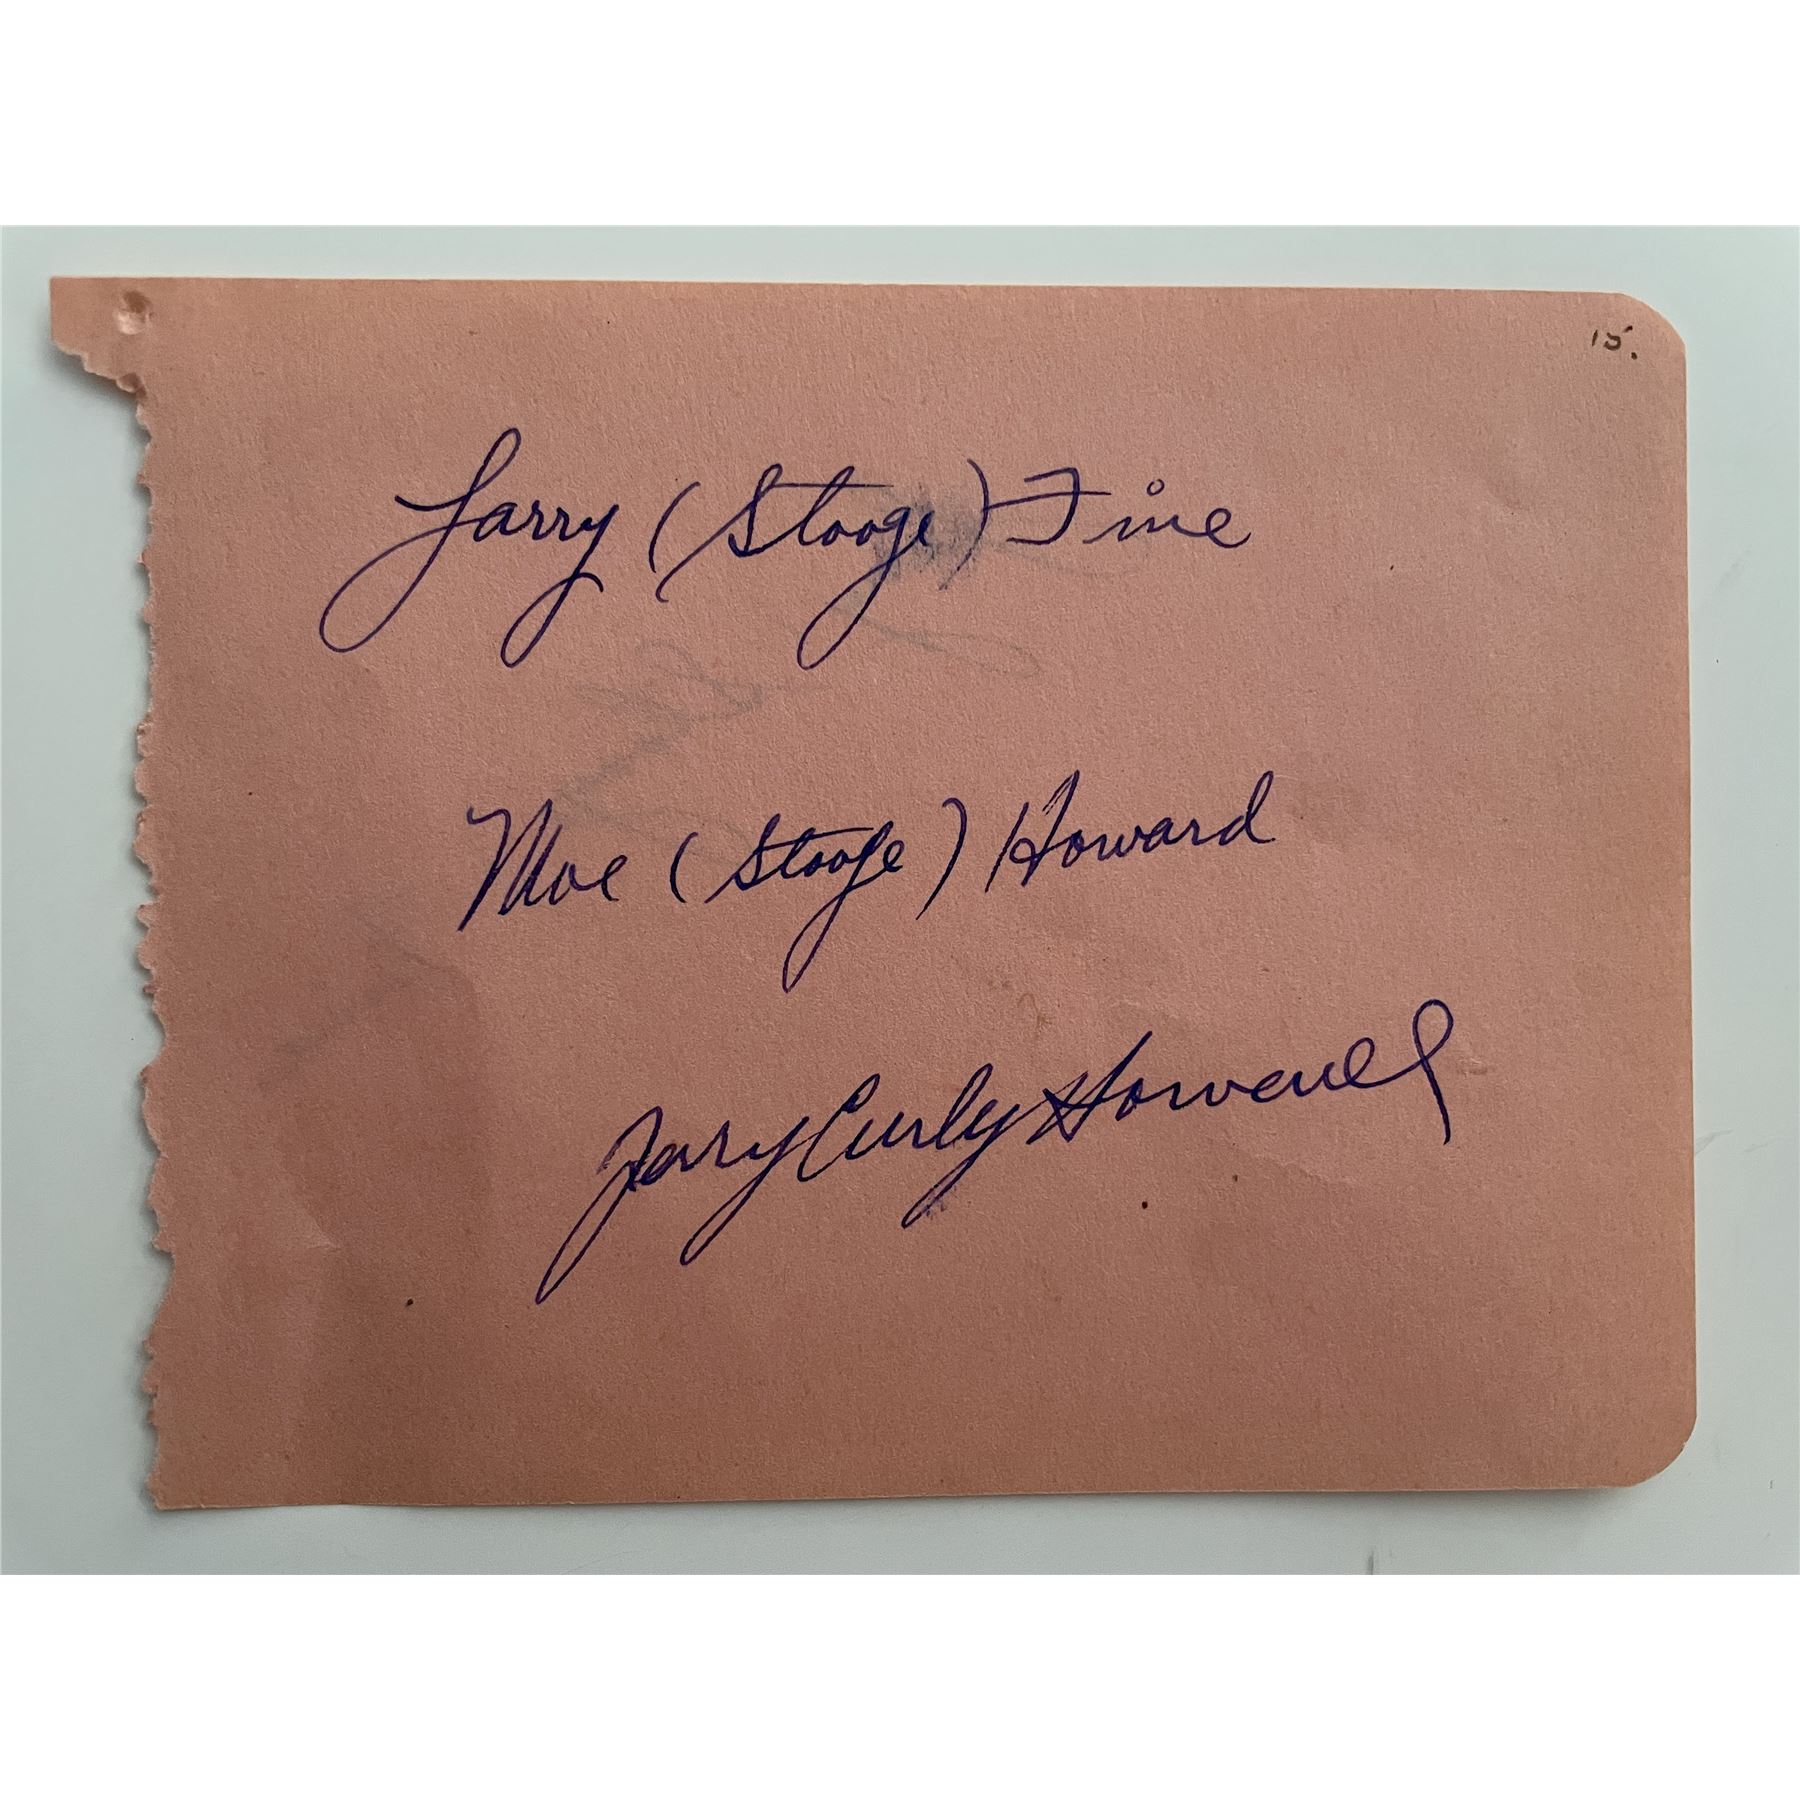 15.
Larry (Stooge) Fine
Moe (Stooge) Howard
Jerry Curly Howard